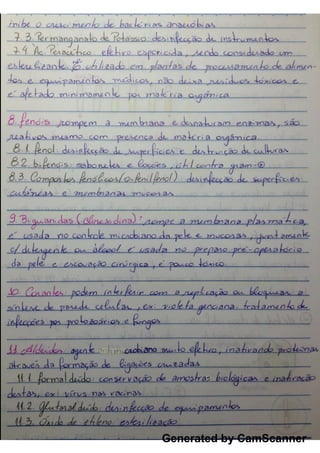 inibe o crescimento de bactérias anaeróbias
7.3. Permanganato de Potássio: desinfecção de instrumentos
7.4. Ác Peracético: efetivo esporicida, sendo considerado um
esterilizante. É utilizado em plantas de processamento de alimen-
tos e equipamentos médicos, não deixa resíduos tóxicos e
é afetado minimamente por matéria orgânica
8. fenóis: rompem a membrana e desnaturam enzimas, são
reativos mesmo com presença de matéria orgânica
8.1. fenol: desinfecção de superfícies e destruição de culturas
8.2. bifenóis: sabonetes e loções, útil contra gram-⊕
8.3. Compostos fenólicos (o-fenilfenol): desinfecção de superfícies
cutâneas e membranas mucosas
9. Biguanidas (clorexidina): rompe a membrana plasmática,
é usada no controle microbiano da pele e mucosas, juntamente
c/ detergente ou álcool é usada no preparo pré-operatório
da pele e escovação cirúrgica, é pouco tóxico
10. Corantes: podem interferir com a replicação ou bloquear a
síntese de parede celular, ex: violeta genciana. tratamento de
infecções por protozoários e fungos
11. Aldeídos: agente antimicrobiano muito efetivo, inativando proteínas
através da formação de ligações cruzadas
11.1. formaldeído: conservação de amostras biológicas e inativação
destas, ex: vírus nas vacinas
11.2. Glutaraldeído: desinfecção de equipamentos
11.3. Óxido de etileno: esterilização
Generated by CamScanner